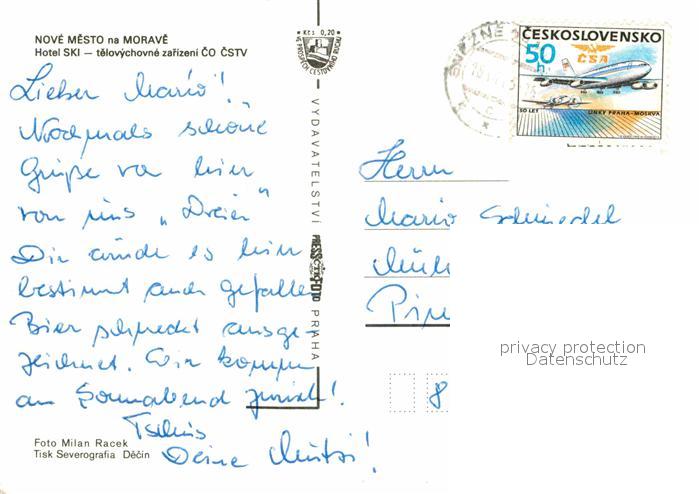 NOVÉ MĚSTO na MORAVĚ
Hotel SKI — tělovýchovné zařízení ČO ČSTV
Lieber Mario!
Nochmals schöne
Grüße von hier
von uns „Dreien"
Dir würde es hier
bestimmt auch gefallen
Bier schmeckt ausge-
zeichnet. Wir kommen
am Sonnabend zurück!
Tschüs
Deine Mutti!
Foto Milan Racek
Tisk Severografia Děčín
Kčs 0,20
VE PROSPĚCH CESTOVNÍHO RUCHU
VYDAVATELSTVÍ PRESSFOTO PRAHA
ČESKOSLOVENSKO
50 h
ČSA
50 LET LINKY PRAHA-MOSKVA
Herrn
Mario Schmiedel
8
privacy protection
Datenschutz